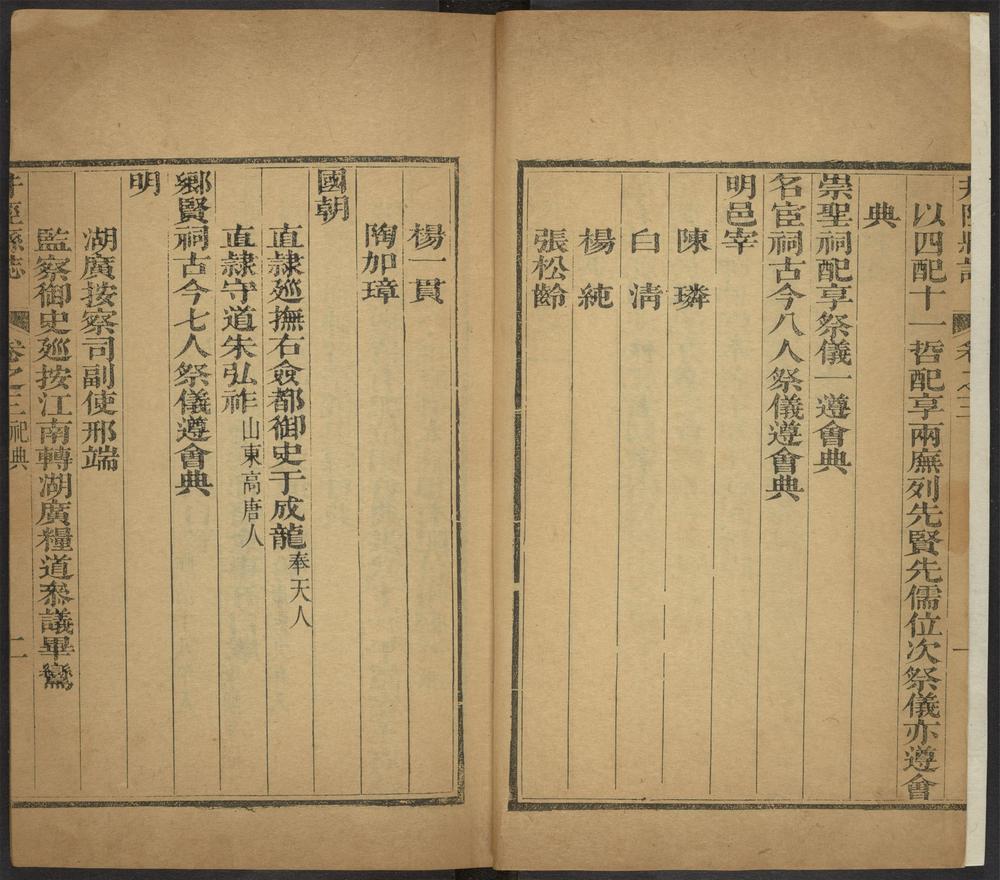 以四配十一哲配享兩廡列先賢先儒位次祭儀亦遵會
典
崇聖祠配享祭儀一遵會典
名宦祠古今八人祭儀遵會典
明邑宰
陳璘
白清
楊純
張松齡
楊一貫
陶加璋
國朝
直隷廵撫右僉都御史于成龍奉天人
直隷守道朱弘祚山東高唐人
鄉賢祠古今七人祭儀遵會典
明
湖廣按察司副使邢端
監察御史廵按江南轉湖廣糧道叅議畢鸞
井陘縣志 卷之三祀典 二